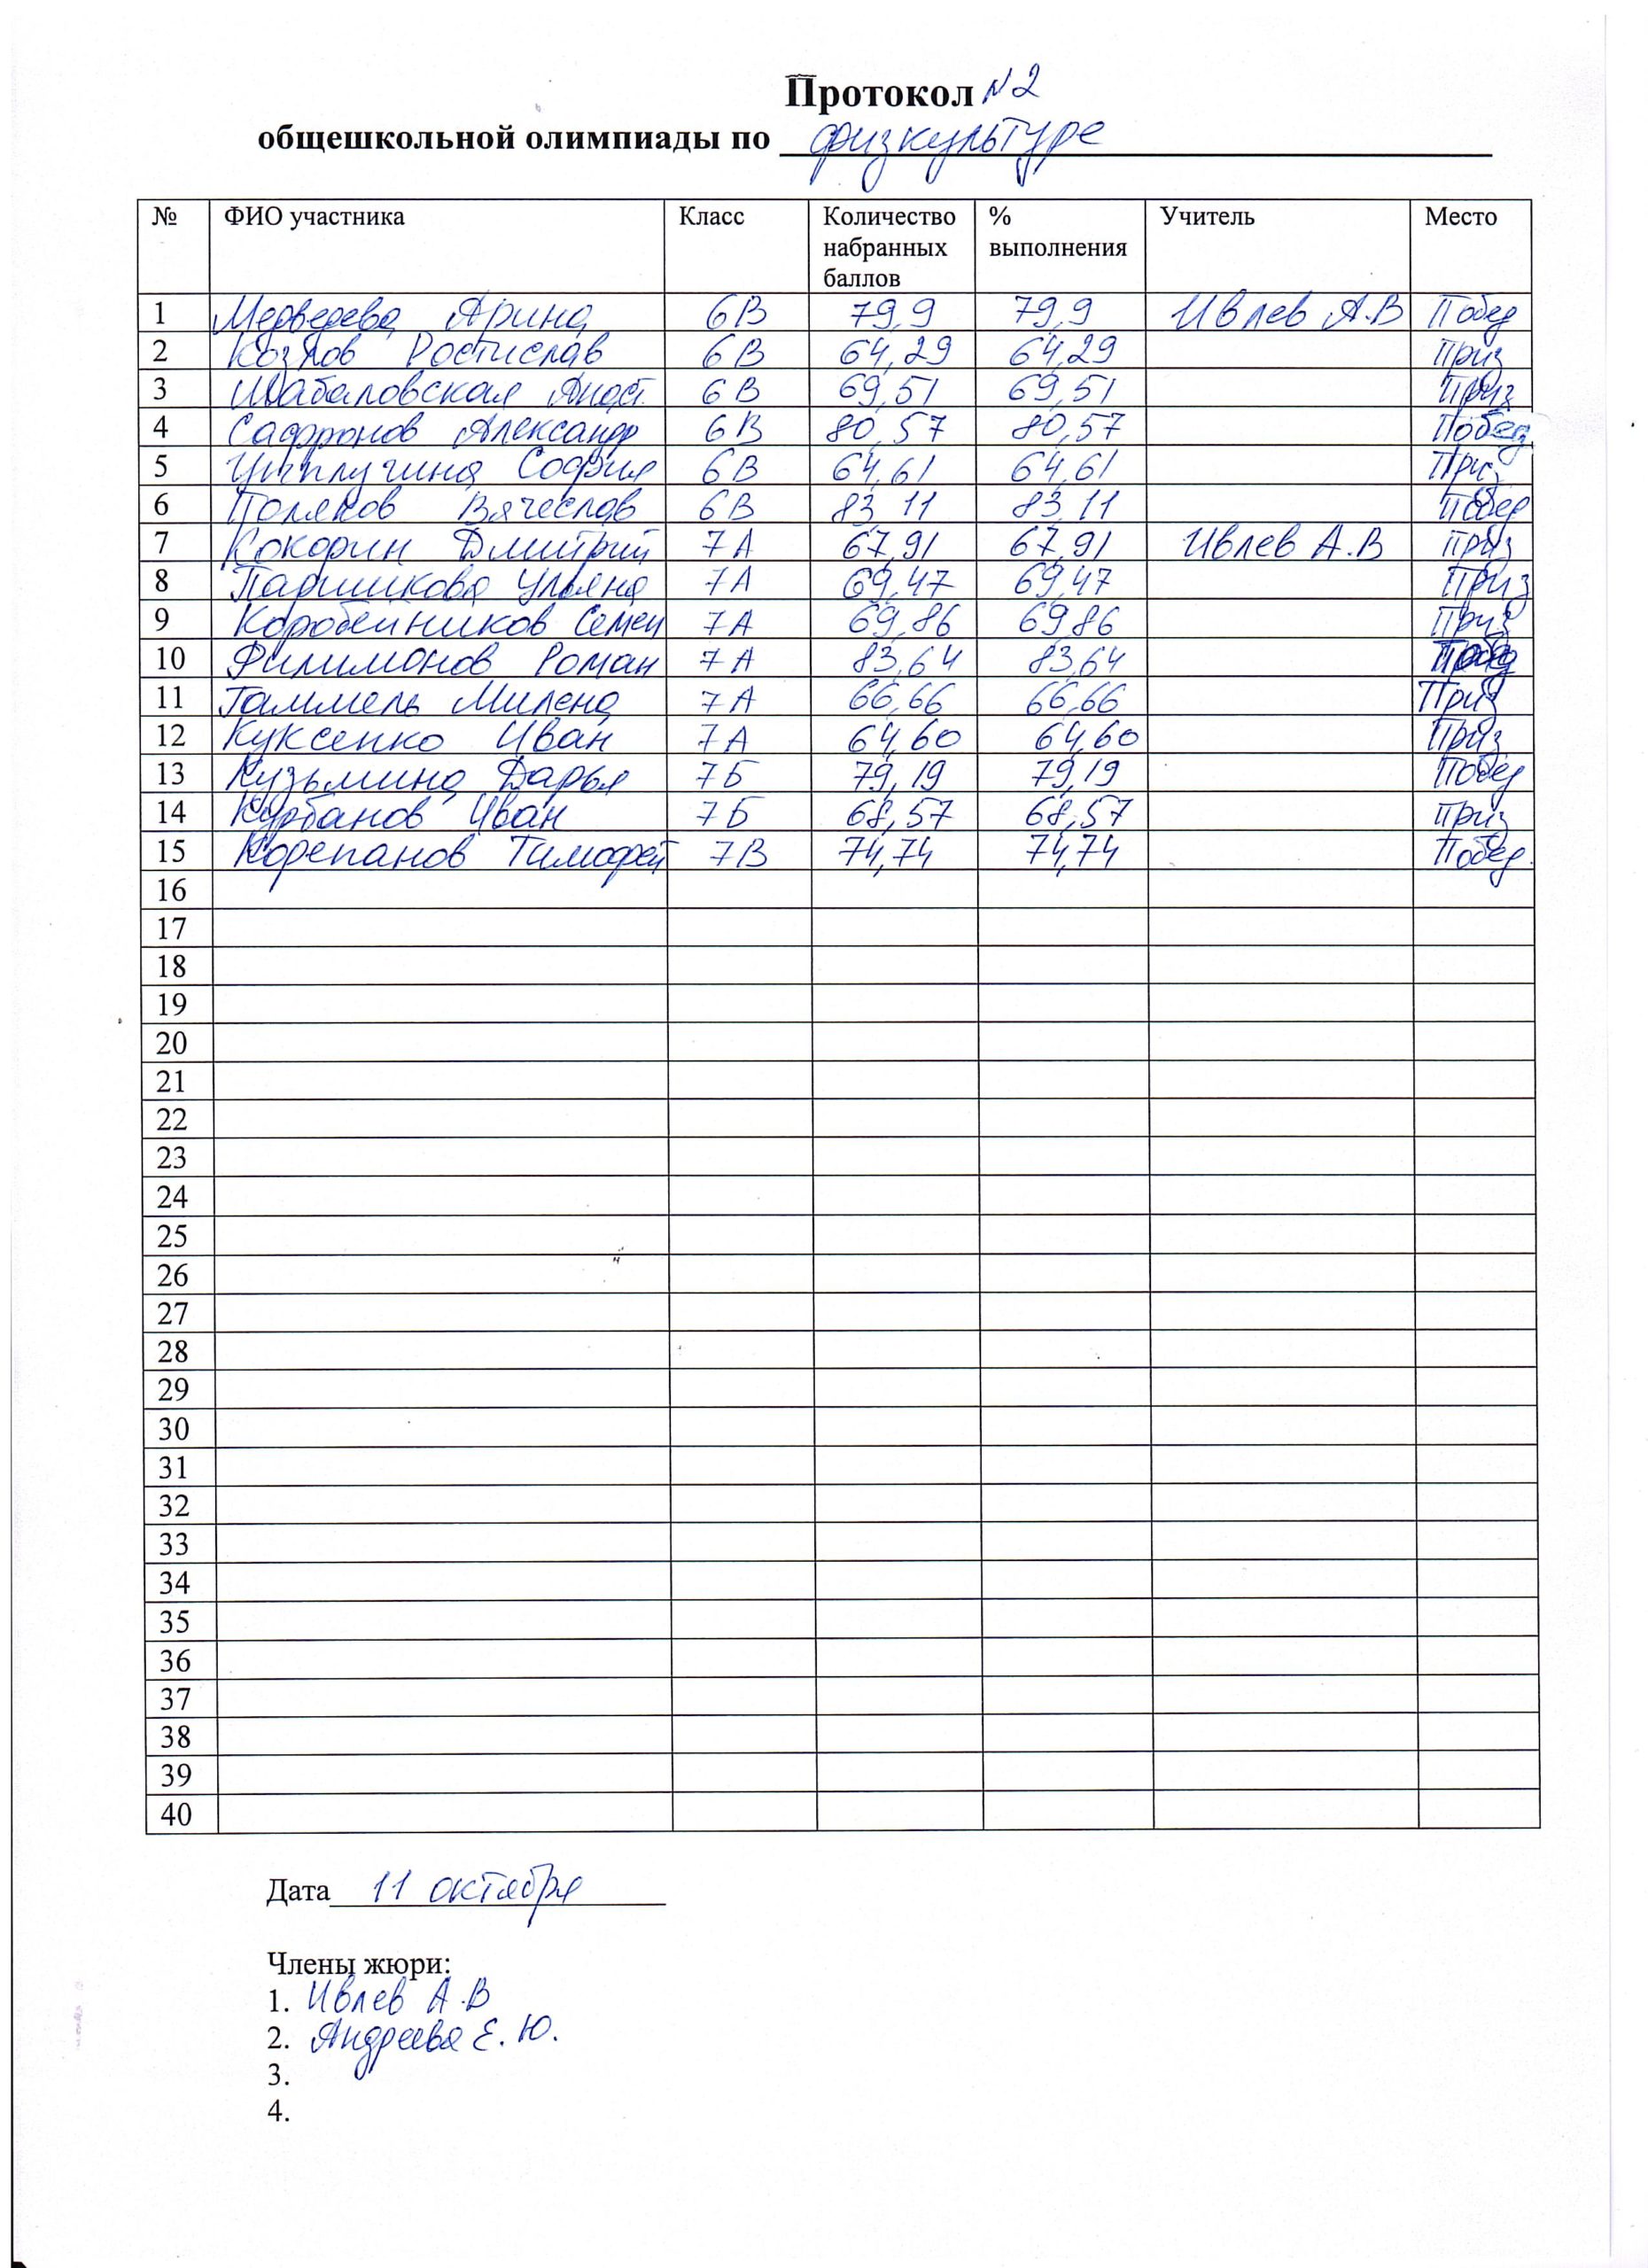 Протокол №2
общешкольной олимпиады по физкультуре
№ ФИО участника Класс Количество набранных баллов % выполнения Учитель Место
1 Медведева Арина 6В 79,9 79,9 Ивлев А.В Побед
2 Козлов Ростислав 6В 64,29 64,29 Приз
3 Шабаловская Анаст. 6В 69,51 69,51 Приз
4 Сафронов Александр 6В 80,57 80,57 Побед
5 София 6В 64,61 64,61 Приз
6 Поляков Вячеслав 6В 83,11 83,11 Побед
7 Кокорин Дмитрий 7А 67,91 67,91 Ивлев А.В Приз
8 Паршикова Ульяна 7А 69,47 69,47 Приз
9 Коробейников Семен 7А 69,86 69,86 Приз
10 Филимонов Роман 7А 83,64 83,64
11 Гаммель Милена 7А 66,66 66,66 Приз
12 Куксенко Иван 7А 64,60 64,60 Приз
13 Кузьмина Дарья 7Б 79,19 79,19 Побед
14 Курбанов Иван 7Б 68,57 68,57 Приз
15 Корепанов Тимофей 7В 74,74 74,74 Побед.
16
17
18
19
20
21
22
23
24
25
26
27
28
29
30
31
32
33
34
35
36
37
38
39
40
Дата 11 октября
Члены жюри:
1. Ивлев А.В
2. Андреева Е.Ю.
3.
4.